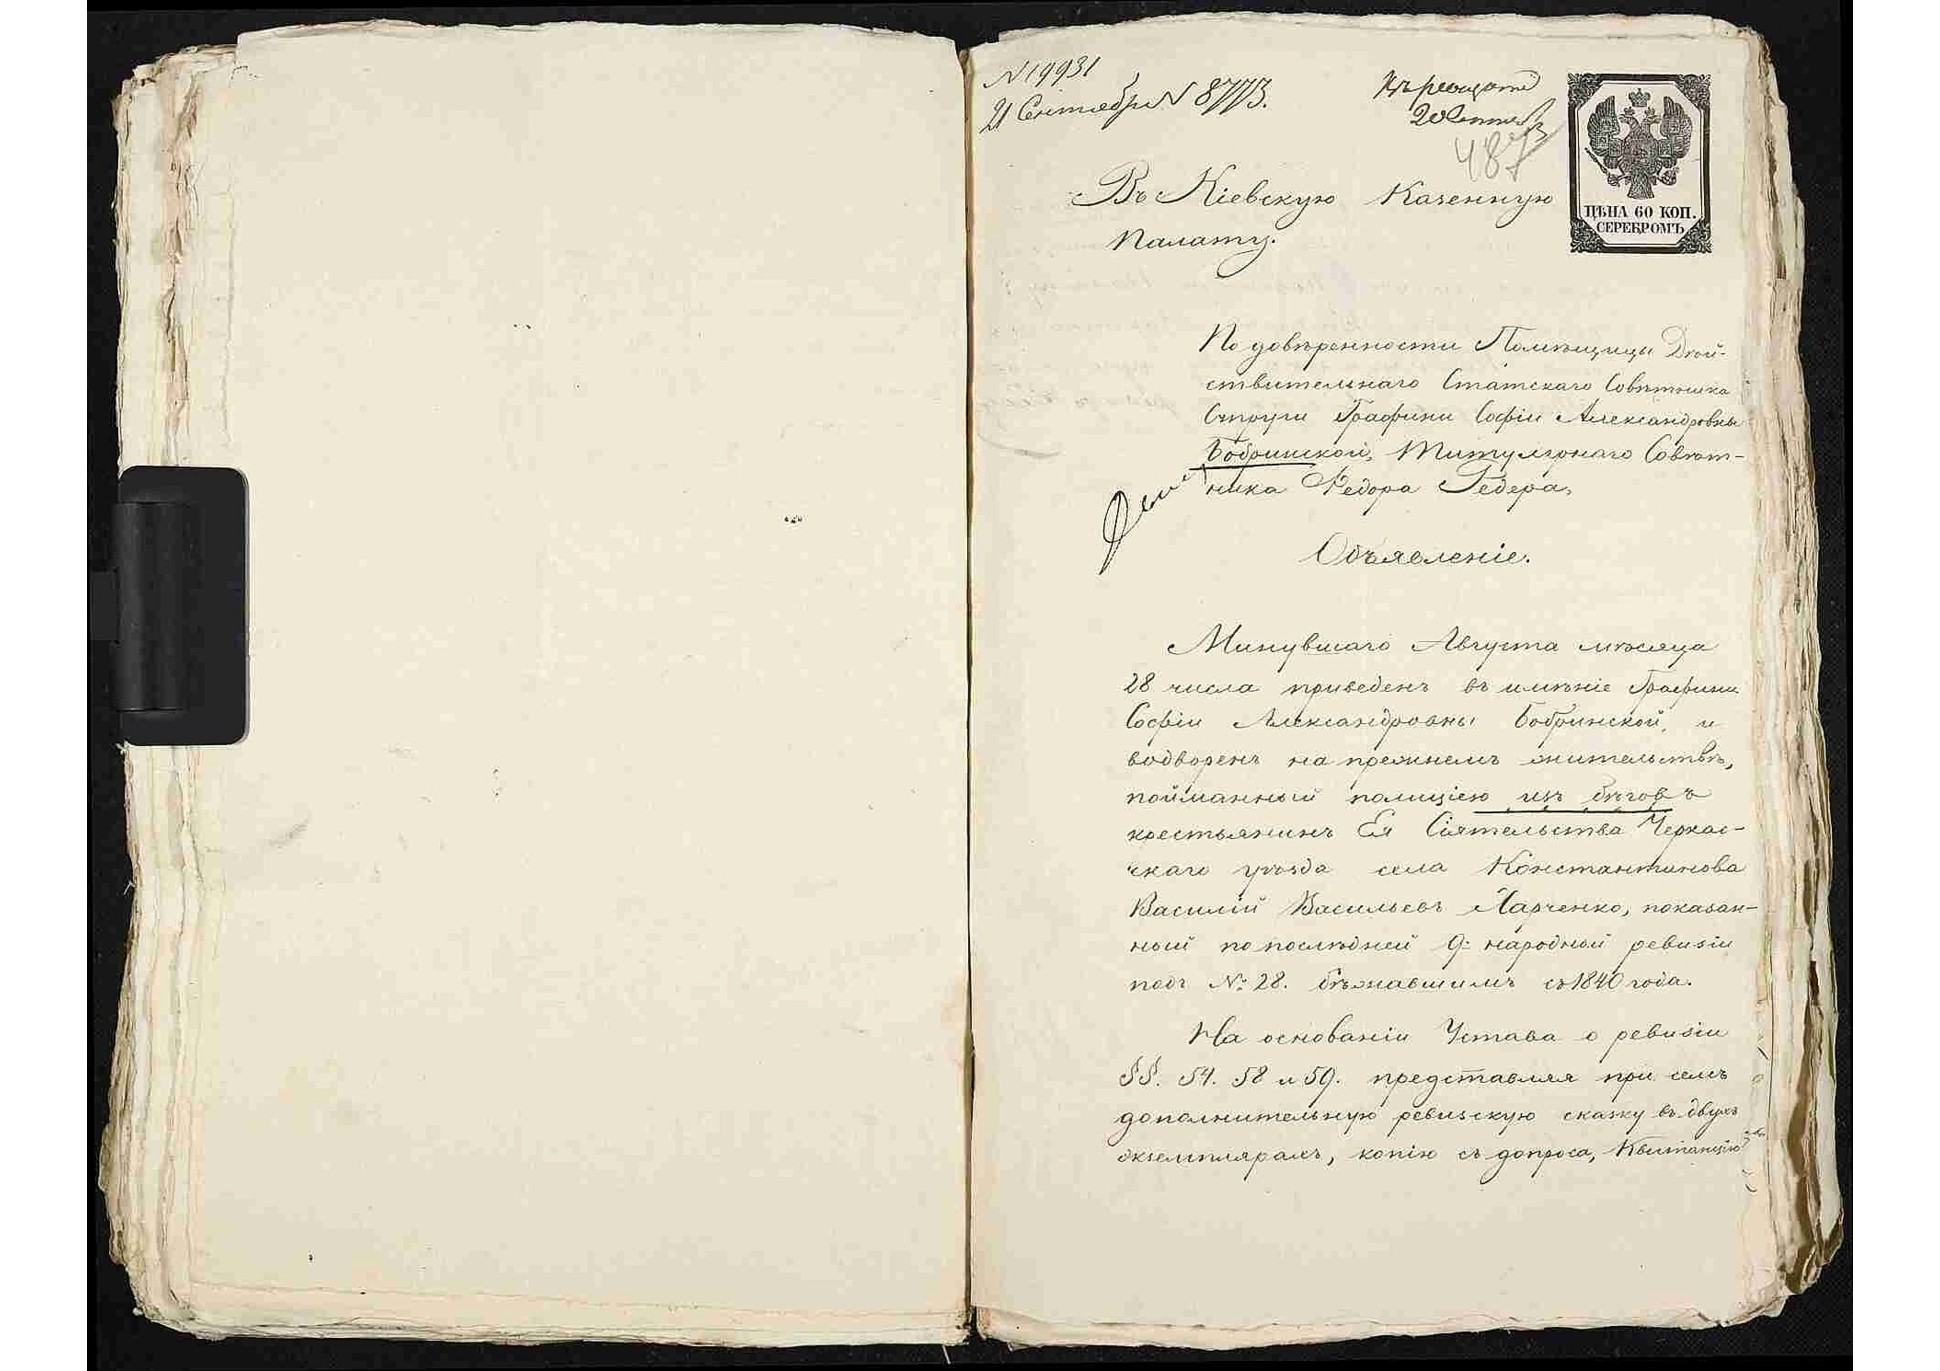 N 19931
21 Сентября N 8773.
20 Сентяб
487
ЦѢНА 60 КОП.
СЕРЕБРОМЪ
Въ Кіевскую Казенную
Палату.
По довѣренности Помѣщицы Дѣй-
ствительнаго Статскаго Совѣтника
Супруги Графини Софіи Александровны
Бобринской, Титулярнаго Совѣт-
ника Федора Гедера,
Объявленіе.
Минувшаго Августа мѣсяца
28 числа приведенъ въ имѣніе Графини
Софіи Александровны Бобринской, и
водворенъ на прежнемъ жительствѣ,
пойманный полиціею изъ бѣговъ
крестьянинъ Ея Сіятельства Черкас-
скаго уѣзда села Константинова
Василій Васильевъ Харченко, показан-
ный по послѣдней 9й народной ревизіи
подъ №: 28. бѣжавшимъ съ 1840 года.
На основаніи Устава о ревизіи
§§. 54. 58 и 59. представляя при семъ
дополнительную ревизскую сказку въ двухъ
экземплярахъ, копію съ допроса, Квитанцію